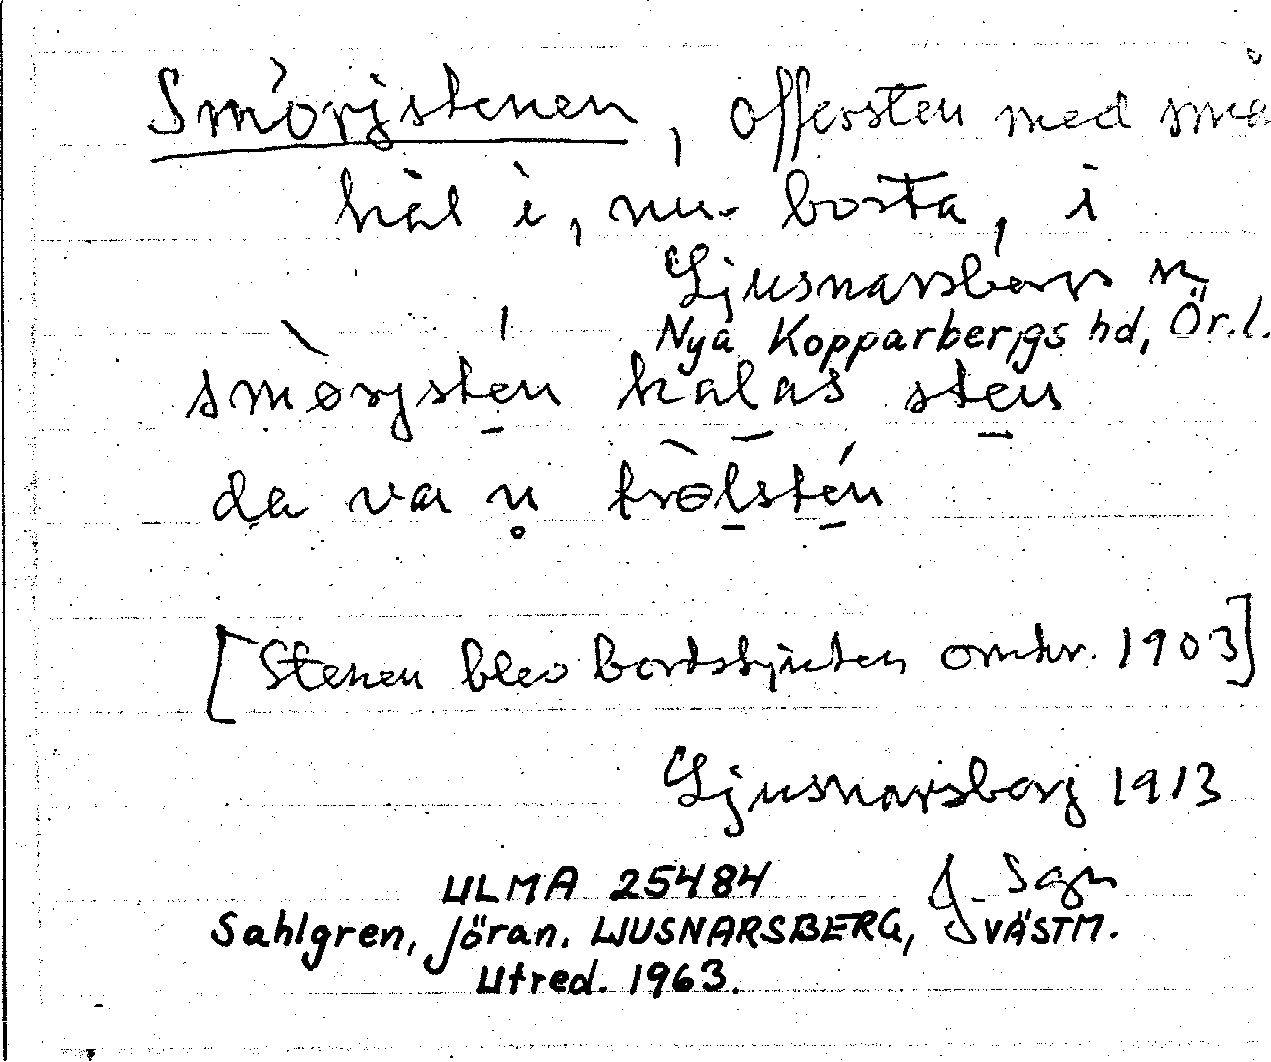 Smörjstenen, offersten med små
hål i, nu borta, i
Ljusnarsbergs sn
Nya Kopparbergs hd, Ör.l.
smørjstén kalas sten
da va n̥ trølstén
[Stenen blev bortskjuten omkr. 1903]
Ljusnarsberg 1913
J. Sgn
ULMA 25484
Sahlgren, Jöran. LJUSNARSBERG, VÄSTM.
Utred. 1963.